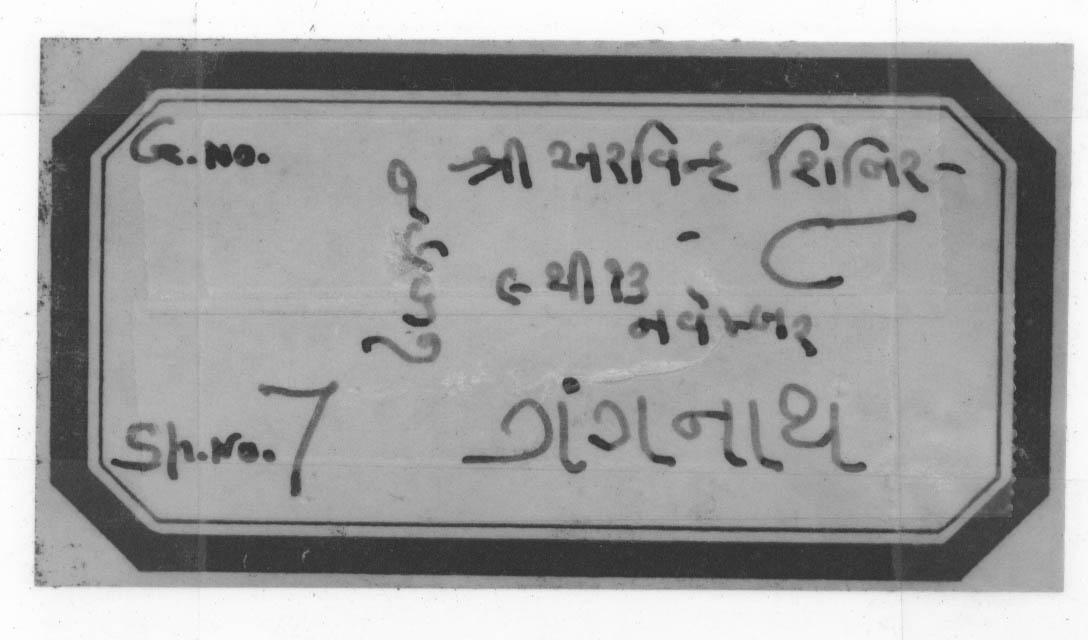 Gr.No.
શ્રી અરવિન્દ શિબિર-
૮
૯ થી ૧૩
નવેમ્બર
Sp.No. 7
ગંગનાથ